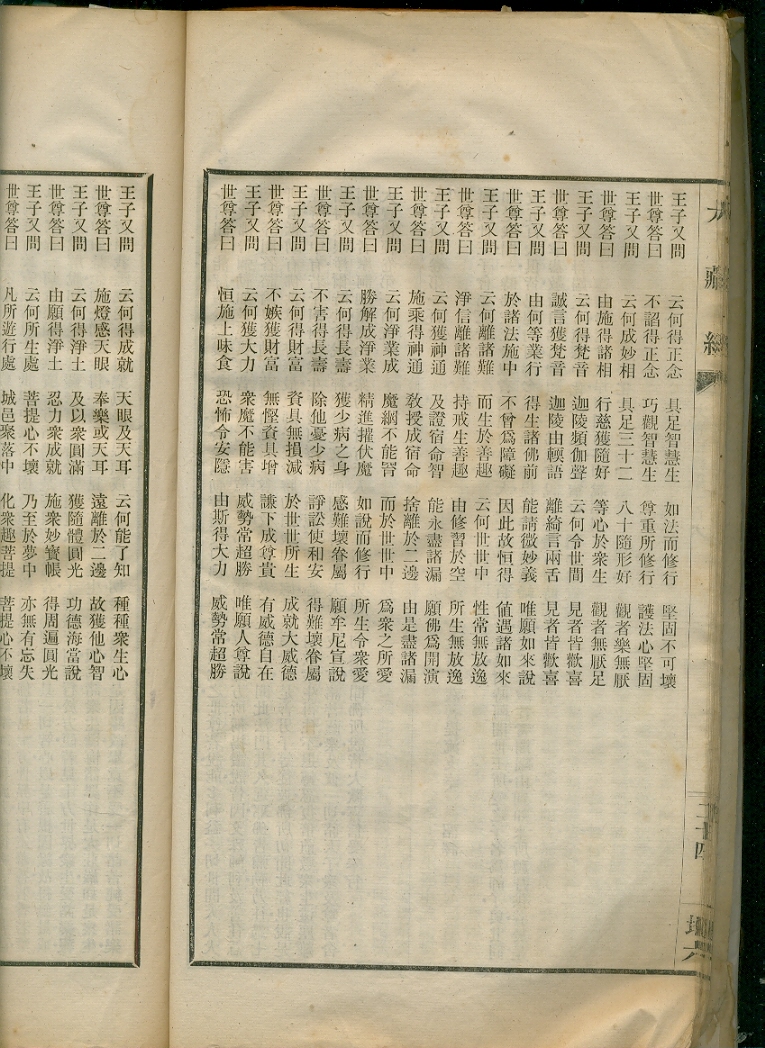 大藏經
二十四
王子又問　云何得正念　具足智慧生　如法而修行　堅固不可壞
世尊答曰　不諂得正念　巧觀智慧生　尊重所修行　護法心堅固
王子又問　云何成妙相　具足三十二　八十隨形好　觀者樂無厭
世尊答曰　由施得諸相　行慈獲隨好　等心於衆生　觀者無厭足
王子又問　云何得梵音　迦陵頻伽聲　云何令世間　見者皆歡喜
世尊答曰　誠言獲梵音　迦陵由輭語　離綺言兩舌　見者皆歡喜
王子又問　由何等業行　得生諸佛前　能請微妙義　唯願如來說
世尊答曰　於諸法施中　不曾爲障礙　因此故恒得　値遇諸如來
王子又問　云何離諸難　而生於善趣　云何世世中　性常無放逸
世尊答曰　淨信離諸難　持戒生善趣　由修習於空　所生無放逸
王子又問　云何獲神通　及證宿命智　能永盡諸漏　願佛爲開演
世尊答曰　施乘得神通　敎授成宿命　捨離於二邊　由是盡諸漏
王子又問　云何淨業成　魔網不能罥　而於世世中　爲衆之所愛
世尊答曰　勝解成淨業　精進摧伏魔　如說而修行　所生令衆愛
王子又問　云何得長壽　獲少病之身　感難壞眷屬　願牟尼宣說
世尊答曰　不害得長壽　除他憂少病　諍訟使和安　得難壞眷屬
王子又問　云何得財富　資具無損減　於世世所生　成就大威德
世尊答曰　不嫉獲財富　無慳資具增　謙下成尊貴　有威德自在
王子又問　云何獲大力　衆魔不能害　威勢常超勝　唯願人尊說
世尊答曰　恒施上味食　恐怖令安隱　由斯得大力　威勢常超勝
王子又問　云何得成就　天眼及天耳　云何能了知　種種衆生心
世尊答曰　施燈感天眼　奉樂或天耳　遠離於二邊　故獲他心智
王子又問　云何得淨土　及以衆圓滿　獲隨體圓光　功德海當說
世尊答曰　由願得淨土　忍力衆成就　施衆妙寶帳　得周遍圓光
王子又問　云何所生處　菩提心不壞　乃至於夢中　亦無有忘失
世尊答曰　凡所遊行處　城邑聚落中　化衆趣菩提　菩提心不壞